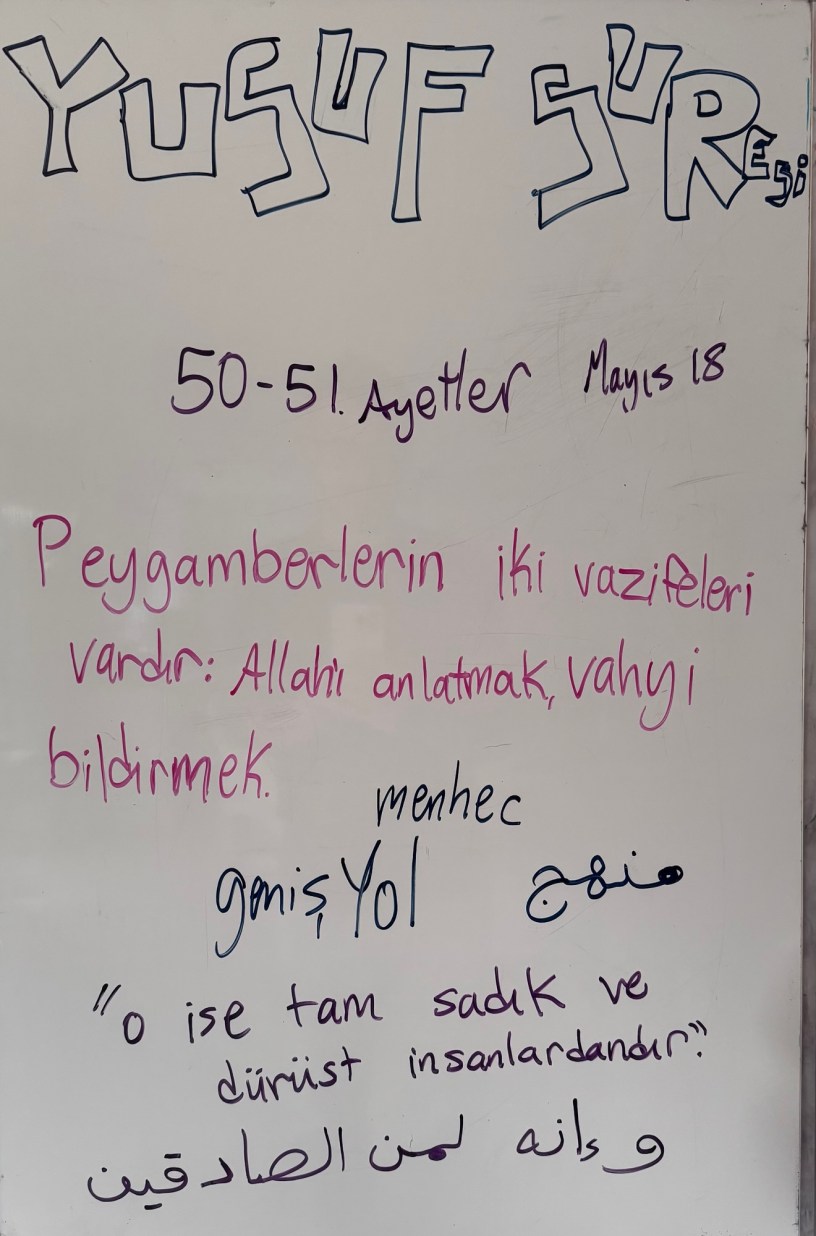 YUSUF SURESİ
50-51. Ayetler Mayıs 18
Peygamberlerin iki vazifeleri
vardır: Allah'ı anlatmak, vahyi
bildirmek.
menhec
geniş Yol منهج
"O ise tam sadık ve
dürüst insanlardandır."
وءانه لمن الصادقين